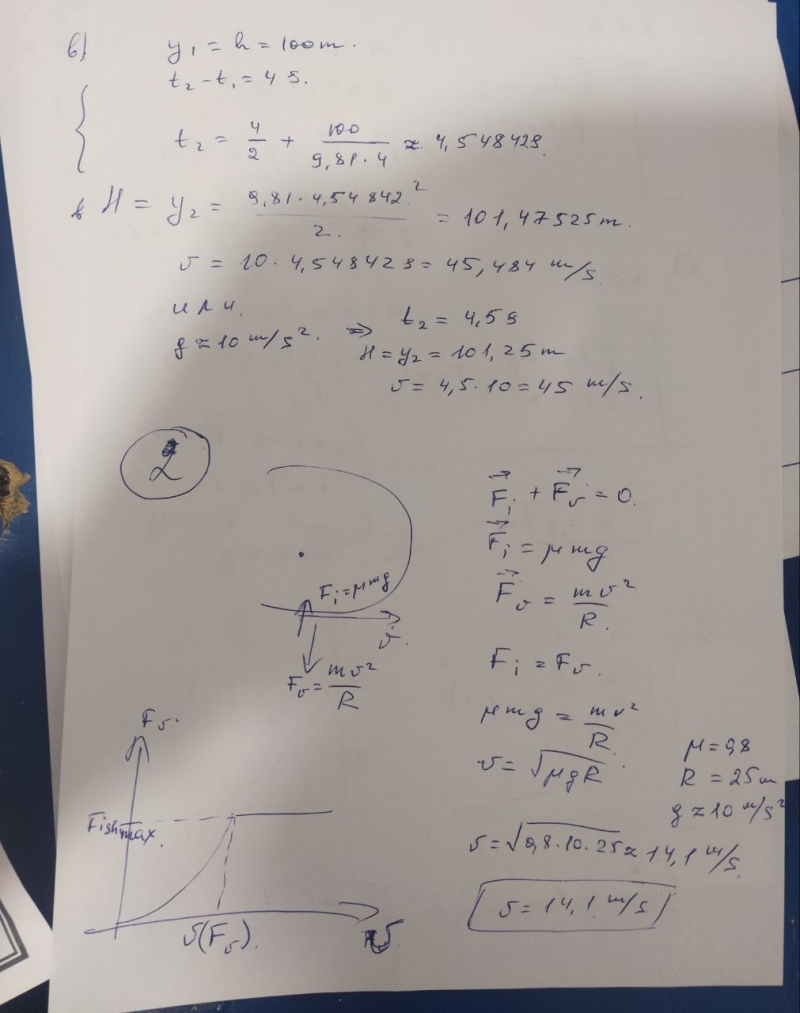 в)
y₁ = h = 100 m.
t₂ - t₁ = 4 s.
t₂ = 4/2 + 100/(9,81·4) ≈ 4,54842 s.
H = y₂ = (9,81·4,54842²)/2. = 101,47525 m.
v = 10·4,54842 s = 45,484 m/s.
или.
g ≈ 10 m/s². ⇒ t₂ = 4,5 s
H = y₂ = 101,25 m
v = 4,5·10 = 45 m/s.
2
Fᵢ = μmg
v.
Fᵥ = mv²/R
F⃗ᵢ + F⃗ᵥ = 0.
F⃗ᵢ = μmg
F⃗ᵥ = mv²/R.
Fᵢ = Fᵥ.
μmg = mv²/R.
v = √μgR.
μ = 0,8
R = 25 m
g ≈ 10 m/s²
v = √0,8·10·25 ≈ 14,1 m/s.
v = 14,1 m/s
Fᵥ.
max.
v(Fᵥ).
v.